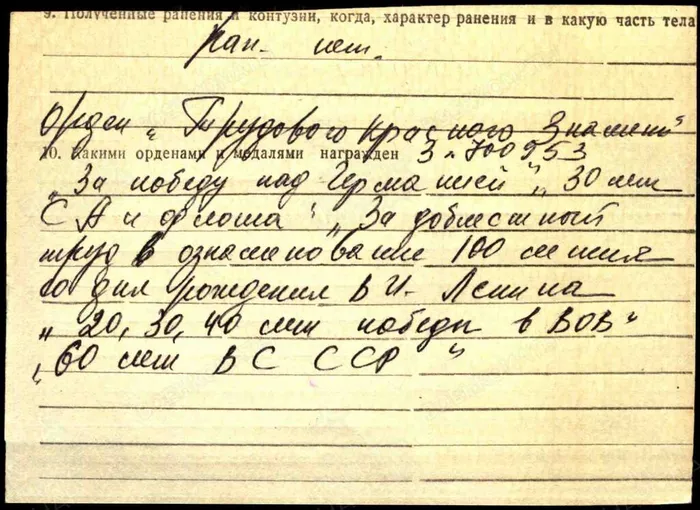 9. Полученные ранения и контузии, когда, характер ранения и в какую часть тела
Ран. нет.
Орден „Трудового Красного Знамени"
10. Какими орденами и медалями награжден З №700953
„За победу над Германией", „30 лет
СА и флота" „За доблестный
труд в ознаменование 100 летия
со дня рождения В И. Ленина
„20, 30, 40 лет победы в ВОВ"
„60 лет ВС ССР"